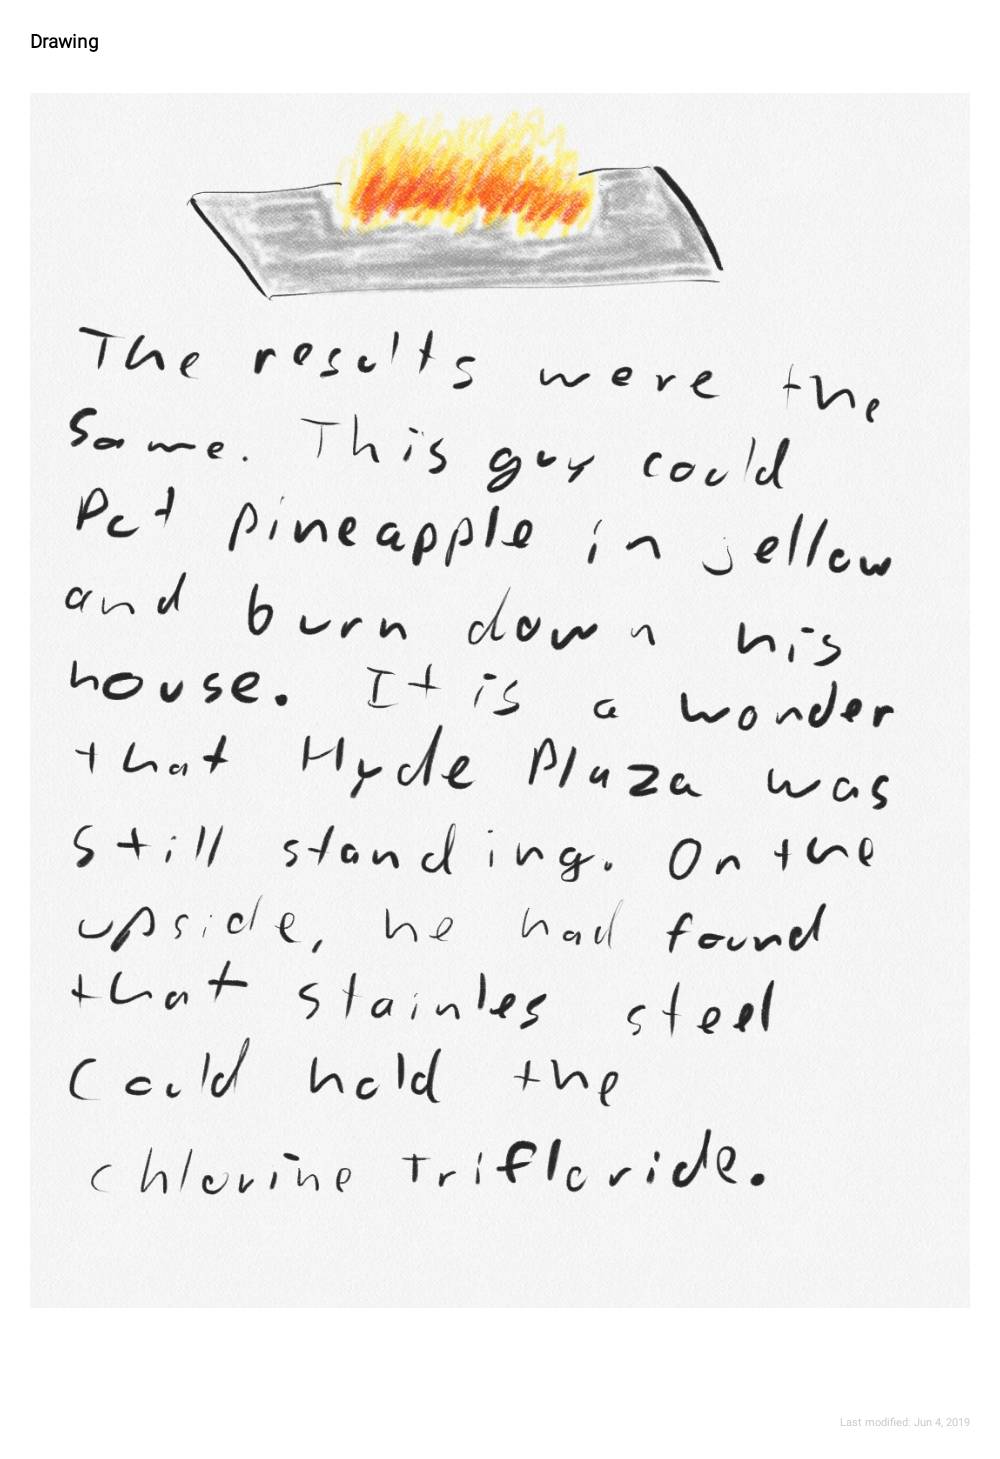 Drawing
The results were the
same. This guy could
Put pineapple in jellow
and burn down his
house. It is a wonder
that Hyde Plaza was
still standing. On the
upside, he had found
that stainles steel
Could hold the
chlorine trifloride.
Last modified: Jun 4, 2019